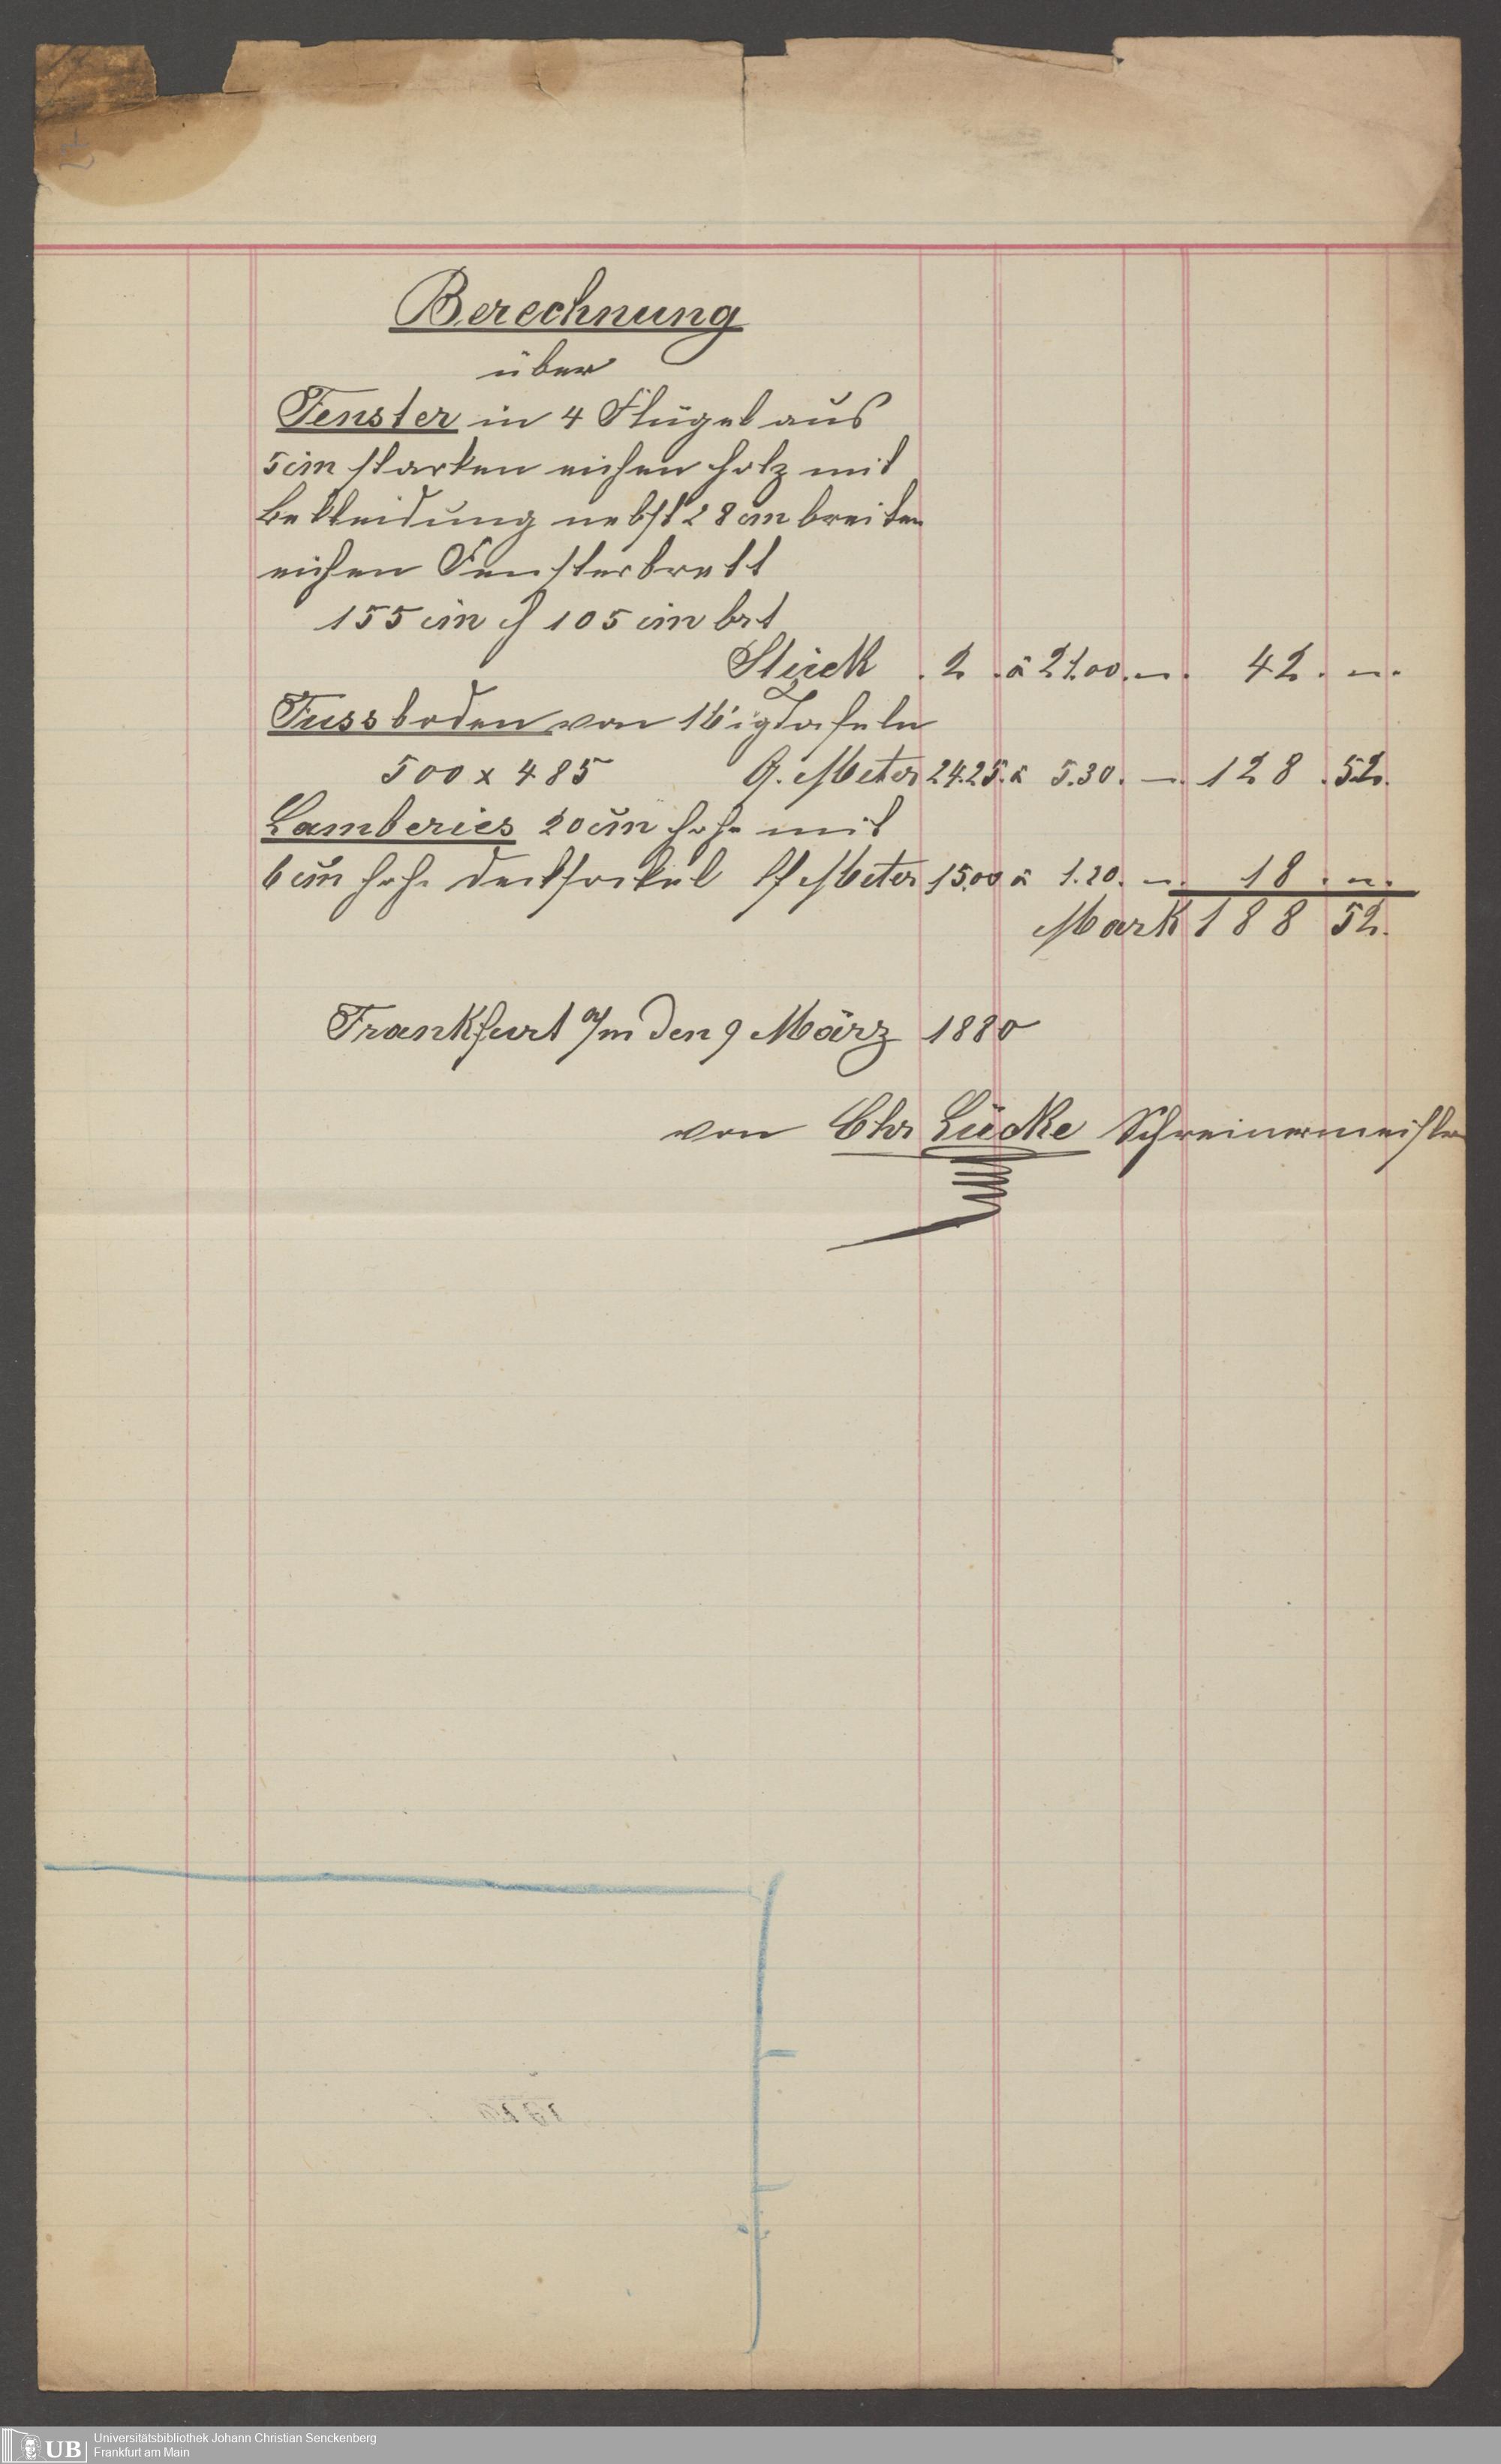 Berechnung
über
Fenster in 4 Flügel aus
5 cm starken eichen Holz mit
Bekleidung nebst 28 cm breiten
eichen Fensterbrett
155 cm h 105 cm brt
Stück . 2 . à 21.00. — . 42 . — .
Fussboden von Tafeln
500 x 485 Q. Meter 24.25. à 5.30. — . 128 . 52.
Lamberies 20 cm hoh mit
6 cm hoh. Decksockel lf Meter 15.00 à 1.20. — . 18 . — .
Mark 188 52.
Frankfurt a/m den 9 März 1880
von Chr Lücke Schreinermeister
UB Universitätsbibliothek Johann Christian Senckenberg
Frankfurt am Main